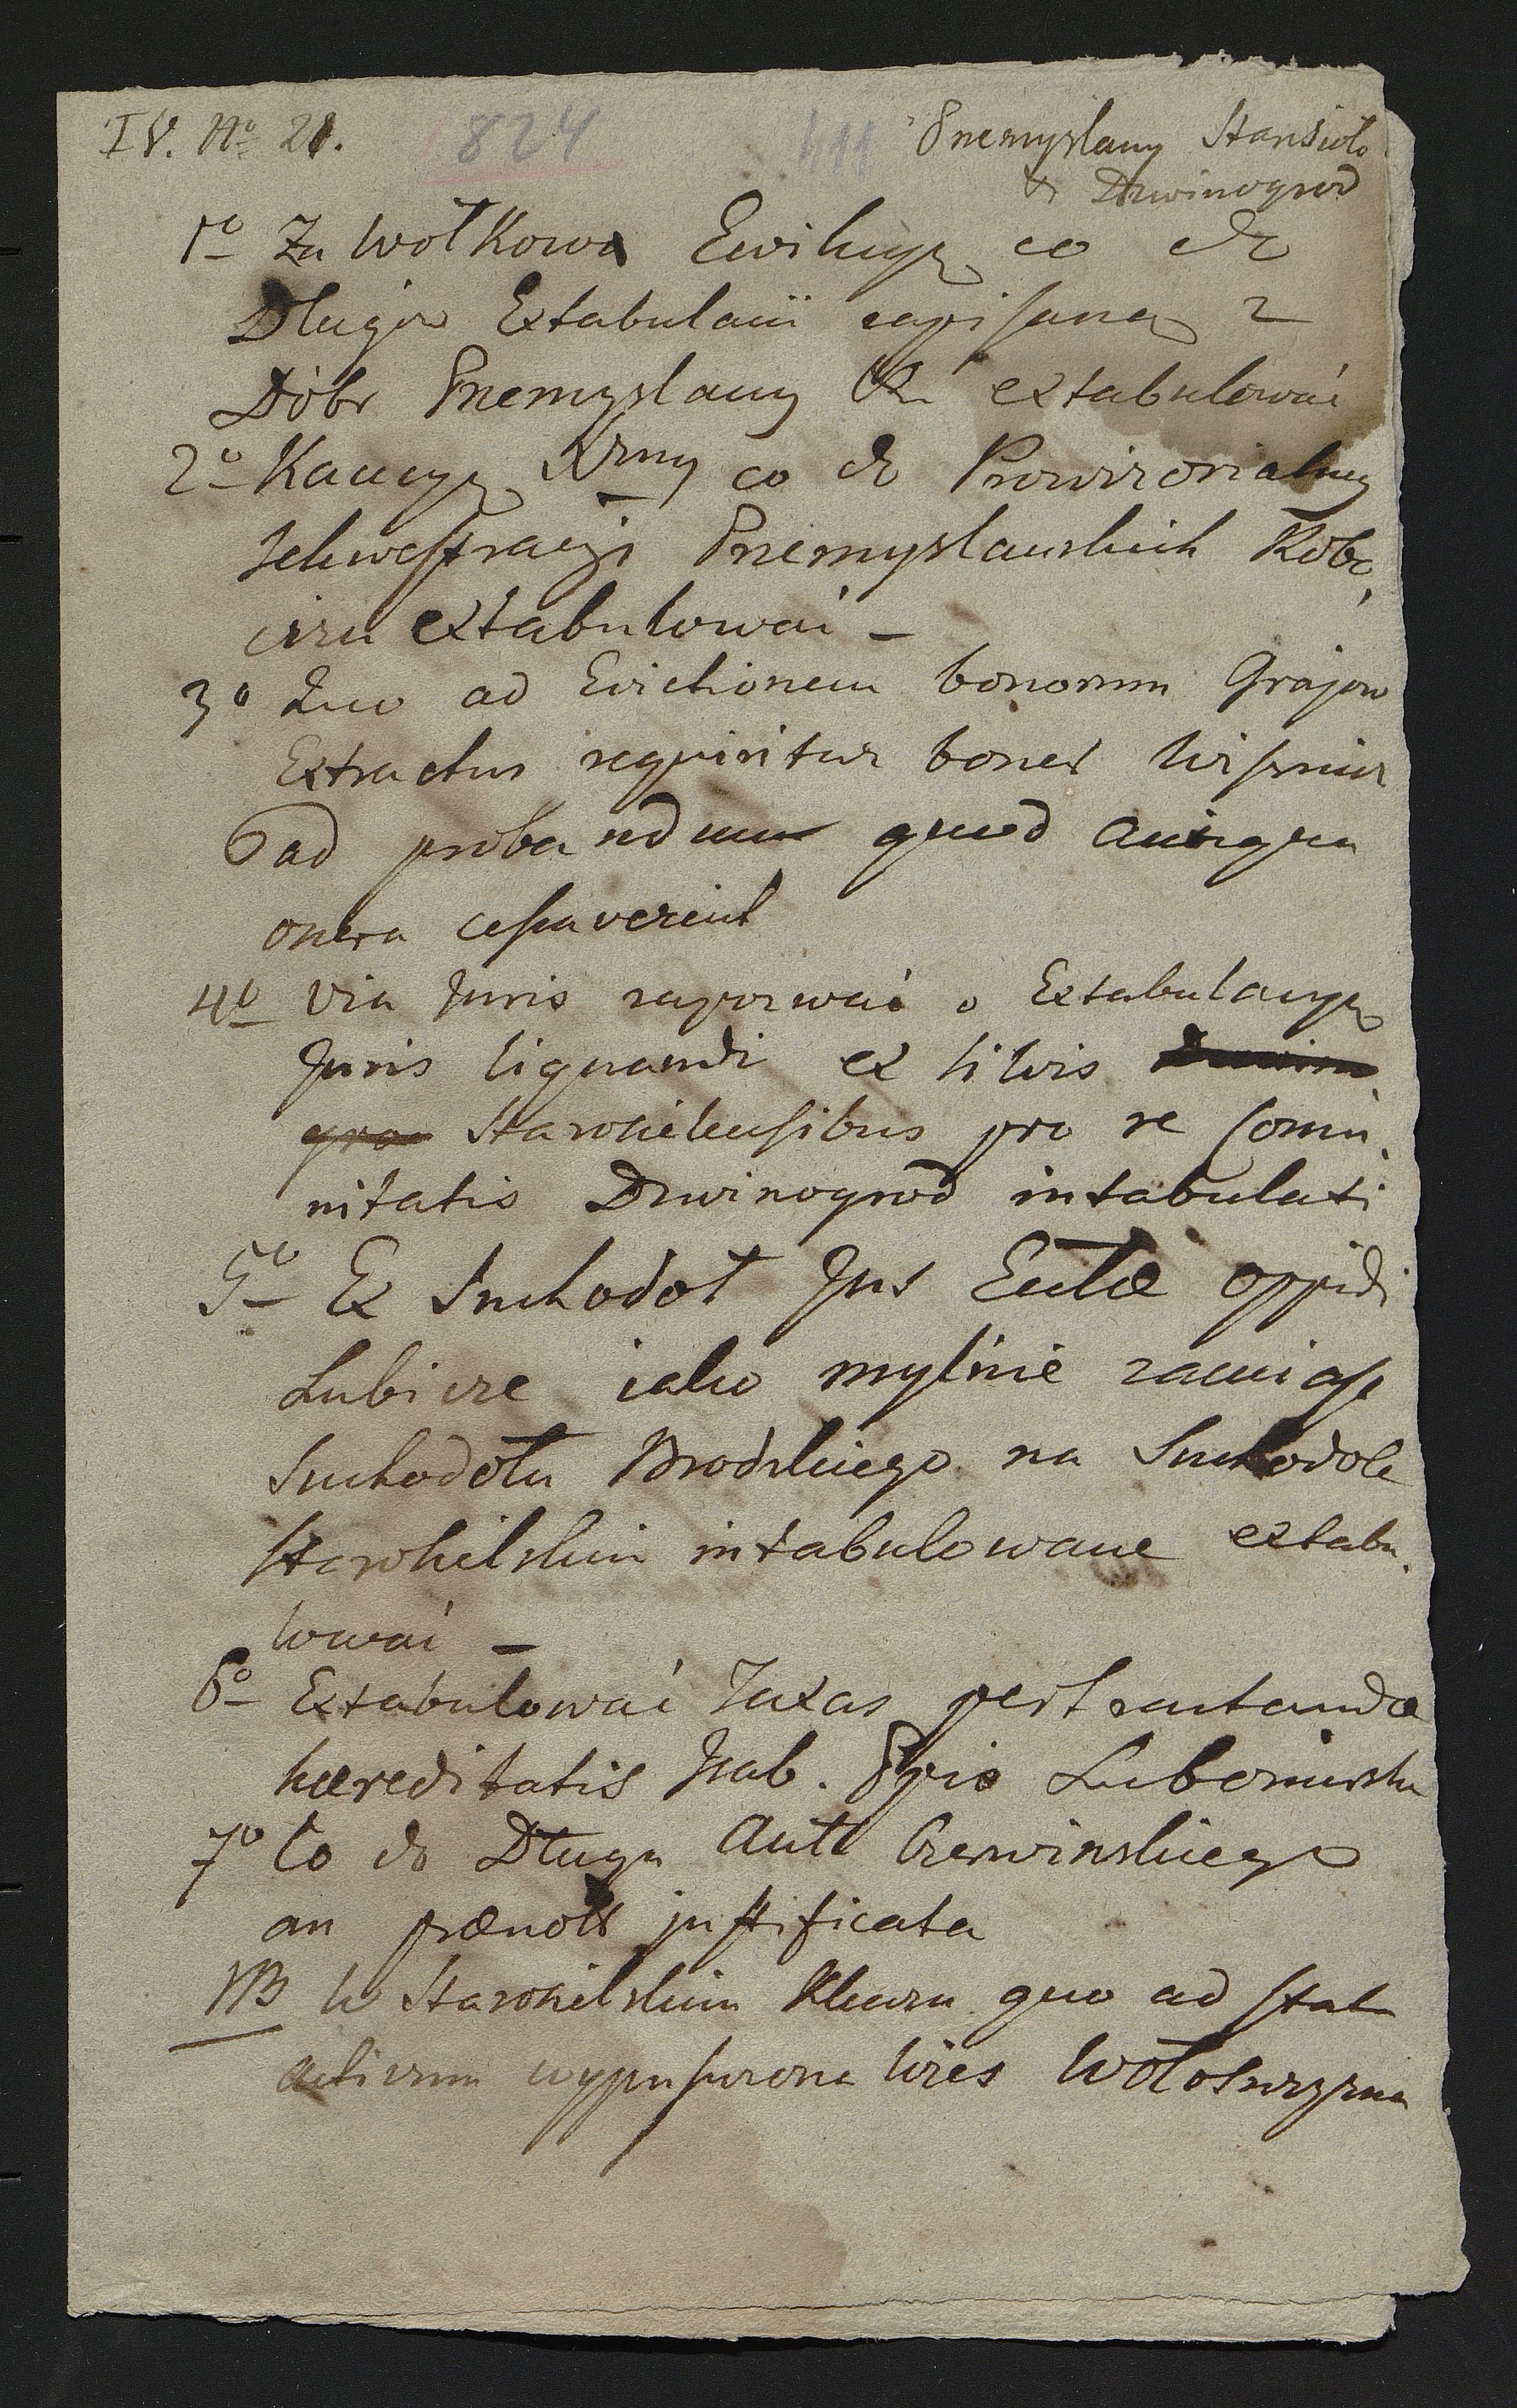 IV. No 21. 1824 411 Przemyslany Starsioło
& Dzwinogrod
1o Za Wołkowa Ewikcyę co do
Długów Extabulacii zapisaną z
Dóbr Przemyslany extabulować
2o Kaucyę co do Prowizorialney
sekwestracyi Przemyslanskich Kobo
extabulować –
3o Quo ad Evictionem bonorum Grajow
Extractus requiritur bonor Wisnicz
ad probandum quod antiqua
onera cessaverint
4o Via Juris zapozwać o Extabulacyę
Juris lignandi ex silvis
Starosielensibus pro re Comu
nitatis Dzwinogrod intabulati
5o Ex Suchodoł Jus Ecclæ oppidi
Lubicze iako mylnie zamiast
Suchodołu Brodzkiego na Suchodole
Starosielskim intabulowane extabu
lować –
6o Extabulować Taxas pertractandæ
hæreditatis Isab. Lubomirska
7o Co do Długu Ant. Czerwinskiego
an prænot. justificata
NB W Starosielskim Kluczu quo ad stat
activum wypuszczona Wies Wołoszczyzna